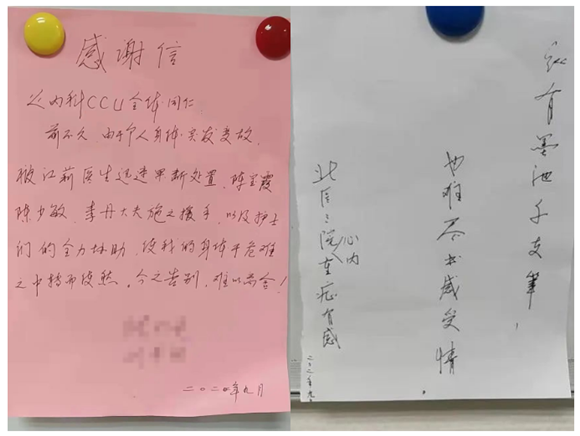 感谢信
心内科CCU全体同仁
前不久 由于个人身体突发变故,
被江莉医生迅速果断处置、陈宝霞
陈少敏、李丹大夫施之援手、以及护士
们的全力协助、使我的身体于危难
之中转而复然。今之告别、难以忘合!
二〇二〇年九月
纵有墨池千支笔,
也难尽书感受情
北医三院心内重症有感
二〇二〇年九